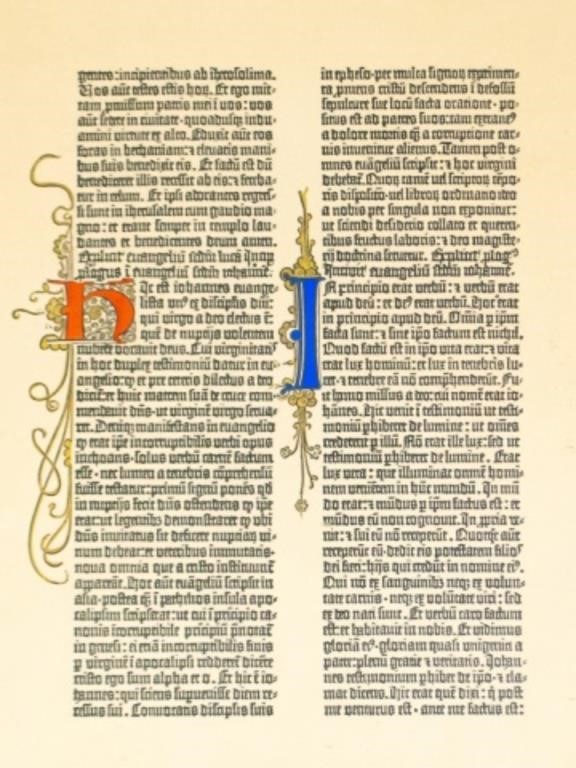 gentes: incipientibus ab iherosolima.
Vos aūt testes estis horū. Et ego mit-
tam promissum patris mei ī vos: vos
aūt sedete in civitate · quoadusq; indu-
amini virtute ex alto. Eduxit aūt eos
foras in bethaniam: ⁊ elevatis mani-
bus suis benedixit eis. Et factū est dū
benediceret illis recessit ab eis: ⁊ fereba-
tur in celum. Et ipsi adorantes regres-
si sunt in iherusalem cum gaudio ma-
gno: et erant semper in templo lau-
dantes et benedicentes deum amen.
Explicit euangeliū scdm lucā Incip̄
plogus ī euangeliū scdm iohannē.
Hic est iohannes euange-
lista un⁹ ex discipls dn̄i:
qui virgo a deo electus ē:
quē de nupcijs volentem
nubere vocavit deus. Cui virginitatꝭ
in hoc duplex testimoniū datur in eu-
angelio: ꝙ et pre ceteris dilectus a deo
dicit: et huic matrem suā de cruce com-
mendavit dn̄s · ut virginē virgo serva-
ret. Deniqꝫ manifestans in euangelio
ꝙ erat ipē incorruptibilis verbi opus
inchoans · solus verbū carnē factum
esse · nec lumen a tenebris cōprehensū
fuisse testatur: primū signū ponēs qd
in nupcijs fecit dn̄s ostendens ꝙ ipē
erat: ut legentibꝫ demonstraret ꝙ ubi
dn̄s invitatus sit deficere nupciaꝝ vi-
num debeat: et veteribus immutatis ·
nova omnia que a cristo instituunt
appareāt. Hoc aūt euāgeliū scripsit in
asia · postea qͣ ī pathmos insula apo-
calipsim scripserat: ut cui ī prīcipio ca-
nonis incorruptibile prīcipiū p̄notat
in genesi: ei etiā incorruptibilis finis
ꝑ virginē ī apocalipsi redderet̄ dicēte
cristo ego sum alpha et o. Et hic ē io-
hannes: qui sciens supvenisse diem re-
cessus sui. Convocatis discipulis suis
in epheso · per multa signoꝝ experimen-
ta ꝓmens cristū descendens ī defossū
sepulture sue locū facta oratione · po-
situs est ad patres suos: tam extrane⁹
a dolore mortis qͣ a corruptione car-
nis invenitur alienus. Tamen post o-
mnes euāgeliū scripsit: ⁊ hoc virgini
debebat̄. Quoꝝ tamē vel scriptoꝝ tēpo-
ris dispositō · vel libroꝝ ordinatio ideo
a nobis per singula non exponitur:
ut sciendi desiderio collato et queren-
tibus fructus laboris: ⁊ deo magiste-
rij doctrina servetur. Explicit plog⁹
Incipit euangeliū scdm iohannē.
In principio erat verbū: ⁊ verbū erat
apud deū: et de⁹ erat verbū. Hoc erat
in principio apud deū. Omīa p ipm
facta sunt: ⁊ sine ipo factum est nichil.
Quod factū est in ipo vita erat: ⁊ vita
erat lux hominū: et lux in tenebris lu-
cet · ⁊ tenebre eā nō comphenderūt. Fu-
it homo missus a deo: cui nomē erat io-
hānes. Hic venit ī testimoniū ut testi-
moniū phiberet de lumine: ut omēs
crederent p illū. Nō erat ille lux: sed ut
testimoniū phiberet de lumine. Erat
lux vera: que illuminat omēm homi-
nem venientem in hūc mundū. In mū-
do erat: ⁊ mūdus p ipm factus est: et
mūdus eū non cognovit. In ppria ve-
nit: ⁊ sui eū nō receperūt. Quotqͦt aūt
receperūt eū · dedit eis potestatem filioꝝ
dei fieri: hijs qui credūt in nomine ei⁹.
Qui nō ex sanguinibꝫ neqꝫ ex volun-
tate carnis · neqꝫ ex volūtate viri: sed
ex deo nati sunt. Et verbū caro factum
est: et habitavit in nobis. Et vidimus
gloriā ei⁹ · gloriam quasi unigeniti a
patre: plenū gratie ⁊ veritatis. Johan-
nes testimonium phibet de ipo · ⁊ cla-
mat dicens. Hic erat quē dixi: q̄ post
me venturus est · ante me factus est: